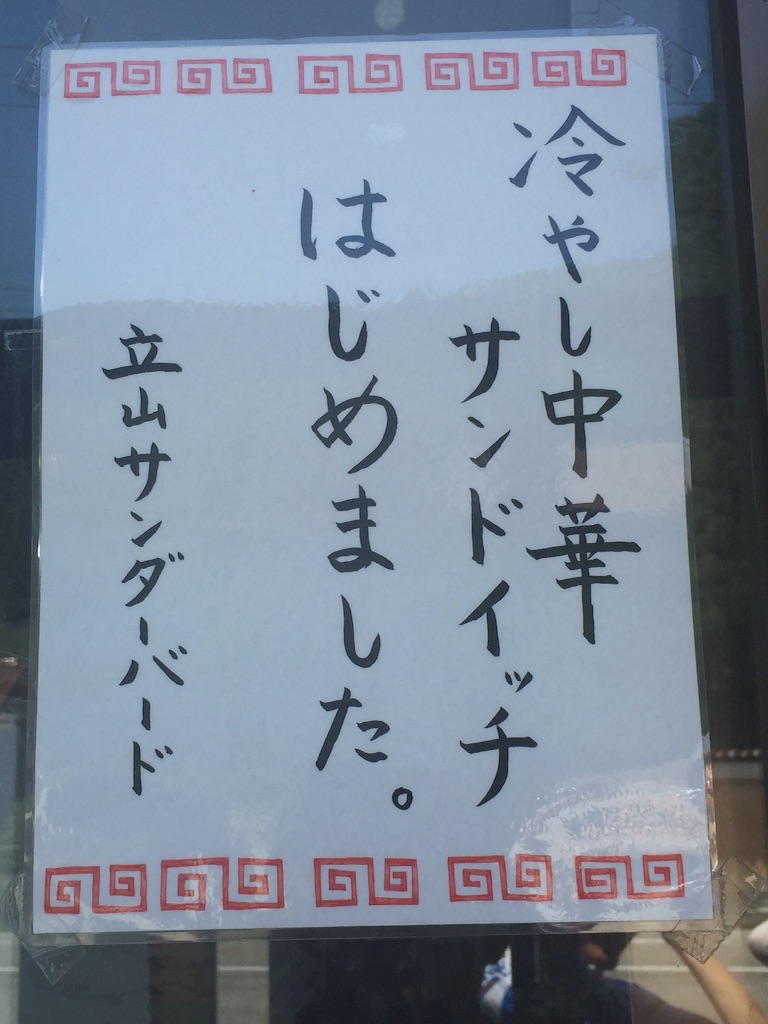 冷やし中華
サンドイッチ
はじめました。
立山サンダーバード